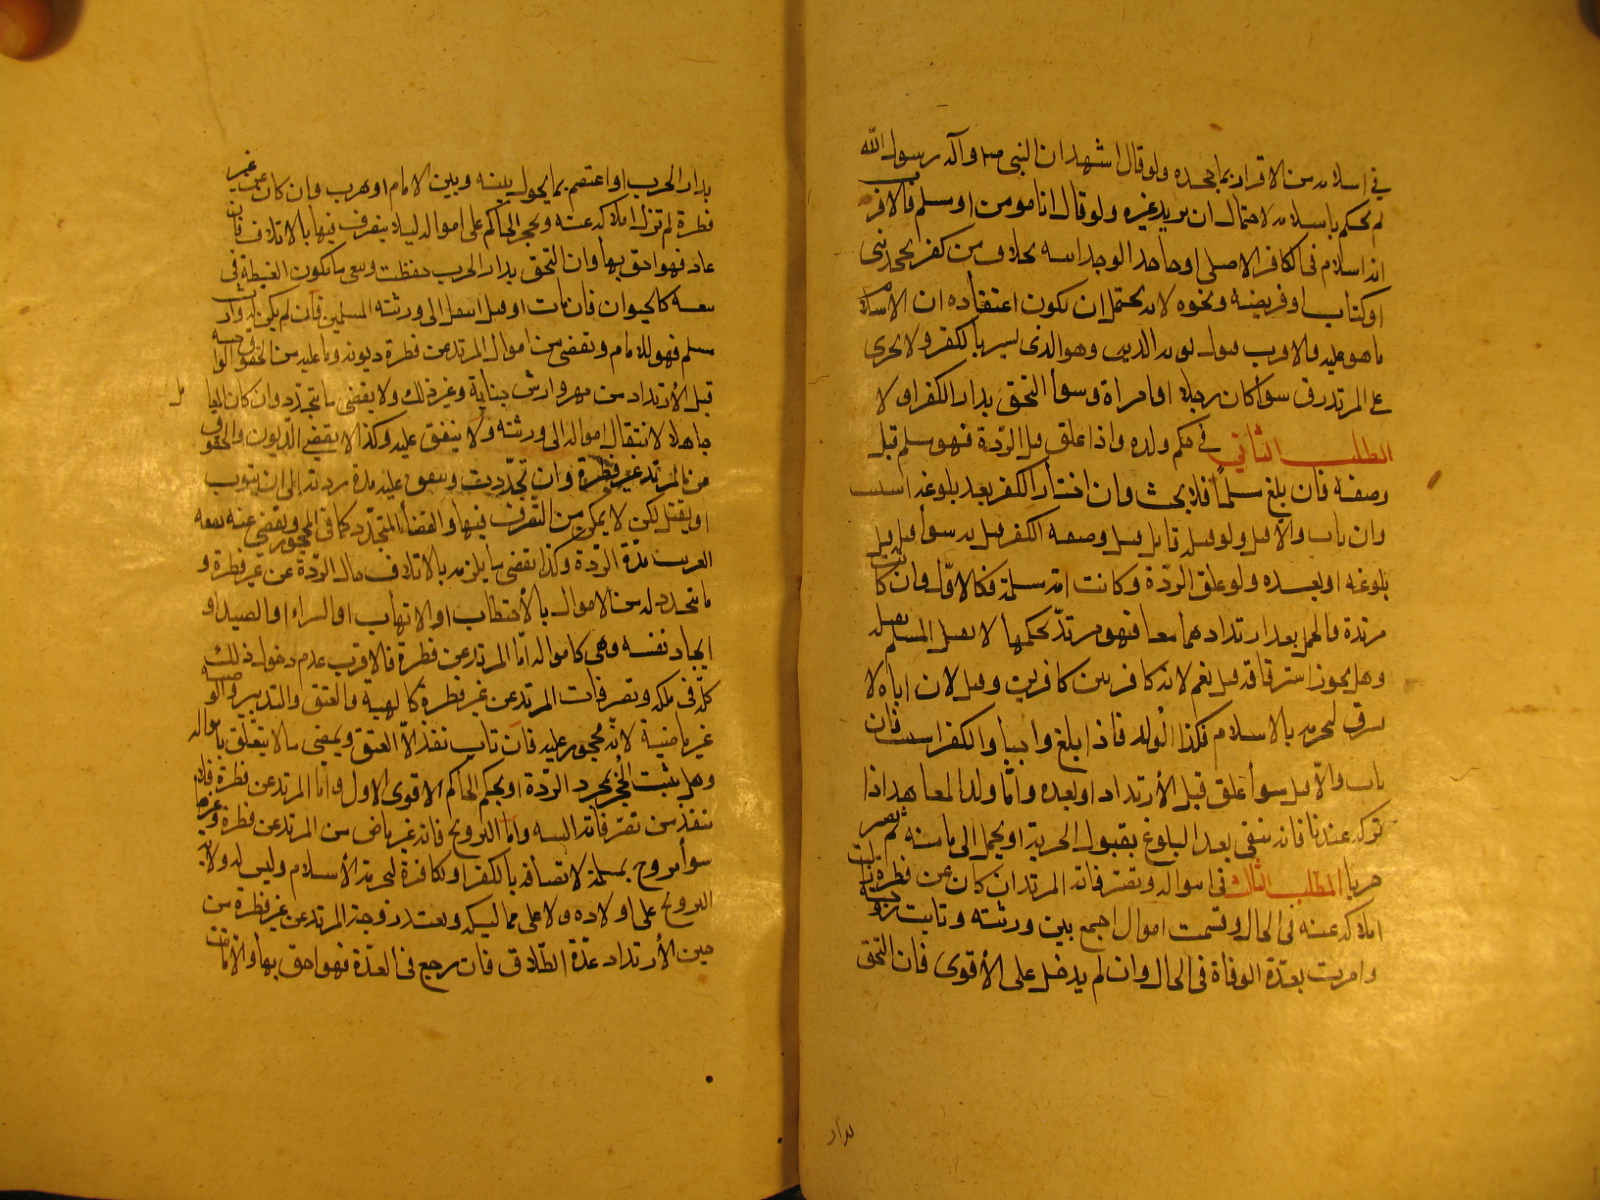 في اسلامه من الاقرار بما جحده ولو قال اشهد ان النبي ص وآله رسول الله
لم يحكم باسلامه لاحتمال ان يريد غيره ولو قال انا مومن او مسلم فالاقرب
انه اسلام في الكافر الاصلي او جاحد الوحدانيه بخلاف من كفر بجحد نبي
او كتاب او فريضه ونحوه لانه يحتمل ان يكون اعتقاده ان الاسلام
ما هو عليه والاقرب قبول توبه الزنديق وهو الذي يستتر بالكفر ولا يجري
على المرتد رق سوا كان رجلا او امراة وسوا التحق بدار الكفر او لا
المطلب الثاني في حكم ولده واذا علق قبل الردة فهو مسلم قبل
وصفه فان بلغ مسلما فلا بحث وان اختار الكفر بعد بلوغه استتيب
وان تاب والا قتل ولو قتله قاتل قبل وصفه الكفر قتل به سوا قتل قبل
بلوغه او بعده ولو علق الردة وكانت امه مسلمة فكالاول وان كانت
مرتدة والحمل بعد ارتدادهما معا فهو مرتد بحكمهما لا يقتل المسلم بقتله
وهل يجوز استرقاقه قيل نعم لانه كافر بين كافرين وقيل لا لان اباه لا
يسترق لتحرمه بالاسلام فكذا الولد فاذا بلغ وابيا والكفر استتيب فان
تاب والا قتل سوا علق قبل الارتداد او بعده واما ولد المعاهد اذا
تركه عندنا فانه ينبغي بعد البلوغ بقبول الجزية او يحمل الى مامنه ثم يصير
حربيا المطلب الثالث في امواله وتصرفاته المرتد ان كان عن فطرة زالت
املاكه عنه في الحال وقسمت امواله اجمع بين ورثته وبانت زوجته
وامرت بعدة الوفاة في الحال وان لم يدخل على الأقوى فان التحق
بدار
بدار الحرب او اعتصم بما يحول بينه وبين الامام او هرب وان كان عن غير
فطرة لم تزل املاكه عنه ويحجر الحاكم على امواله ليلا يتصرف فيها بالاتلاف فان
عاد فهو احق بها وان التحق بدار الحرب حفظت وبيع ما يكون الغبطة في
بيعه كالحيوان فان مات او قتل انتقل الى ورثته المسلمين فان لم يكن له وارث
مسلم فهو للامام وتقضى من اموال المرتد عن فطرة ديونه وما عليه من الحقوق الواجبه
قبل الارتداد من مهر وارش جناية وغير ذلك ولا يقضى ما يتجدد وان كان المعامل
جاهلا لانتقال امواله الى ورثته ولا ينفق عليه وكذا لا يقضى الديون والحقوق
من المرتد غير فطرة وان تجددت وينفق عليه مدة ردته الى ان يتوب
او يقتل لكن لا يمكن من التصرف فيها والقضا المتجدد كما في المحجور ويقضى عنه نفقه
القريب مدة الردة وكذا يقضى ما يلزمه بالاتلاف حال الردة عن غير فطرة و
ما يتجدد له من الاموال بالاحتطاب او الاتهاب او الشراء او الصيد او
ايجاد نفسه وهي كامواله اما المرتد عن فطرة فالاقرب عدم دخول ذلك
كله في ملكه وتصرفات المرتد عن غير فطرة كالهبة والعتق والتدبير والوصيه
غير ماضية لانه محجور عليه فان تاب نفذ الا العتق ويمضى ما لا يتعلق بامواله
وهل يثبت الحجر بمجرد الردة او بحكم الحاكم الاقوى الاول واما المرتد عن فطرة فلا
ينفذ من تصرفاته البته واما التزويج فانه غير ماض من المرتد عن فطرة وغيرها
سوا تزوج بمسلمة لاتصافه بالكفر او بكافرة لتحرمه الاسلام وليس له ولاية
التزويج على اولاده ولا على مماليكه وتعتد زوجة المرتد عن غير فطرة من
حين الارتداد عدة الطلاق فان رجع في العدة فهو احق بها والا بانت